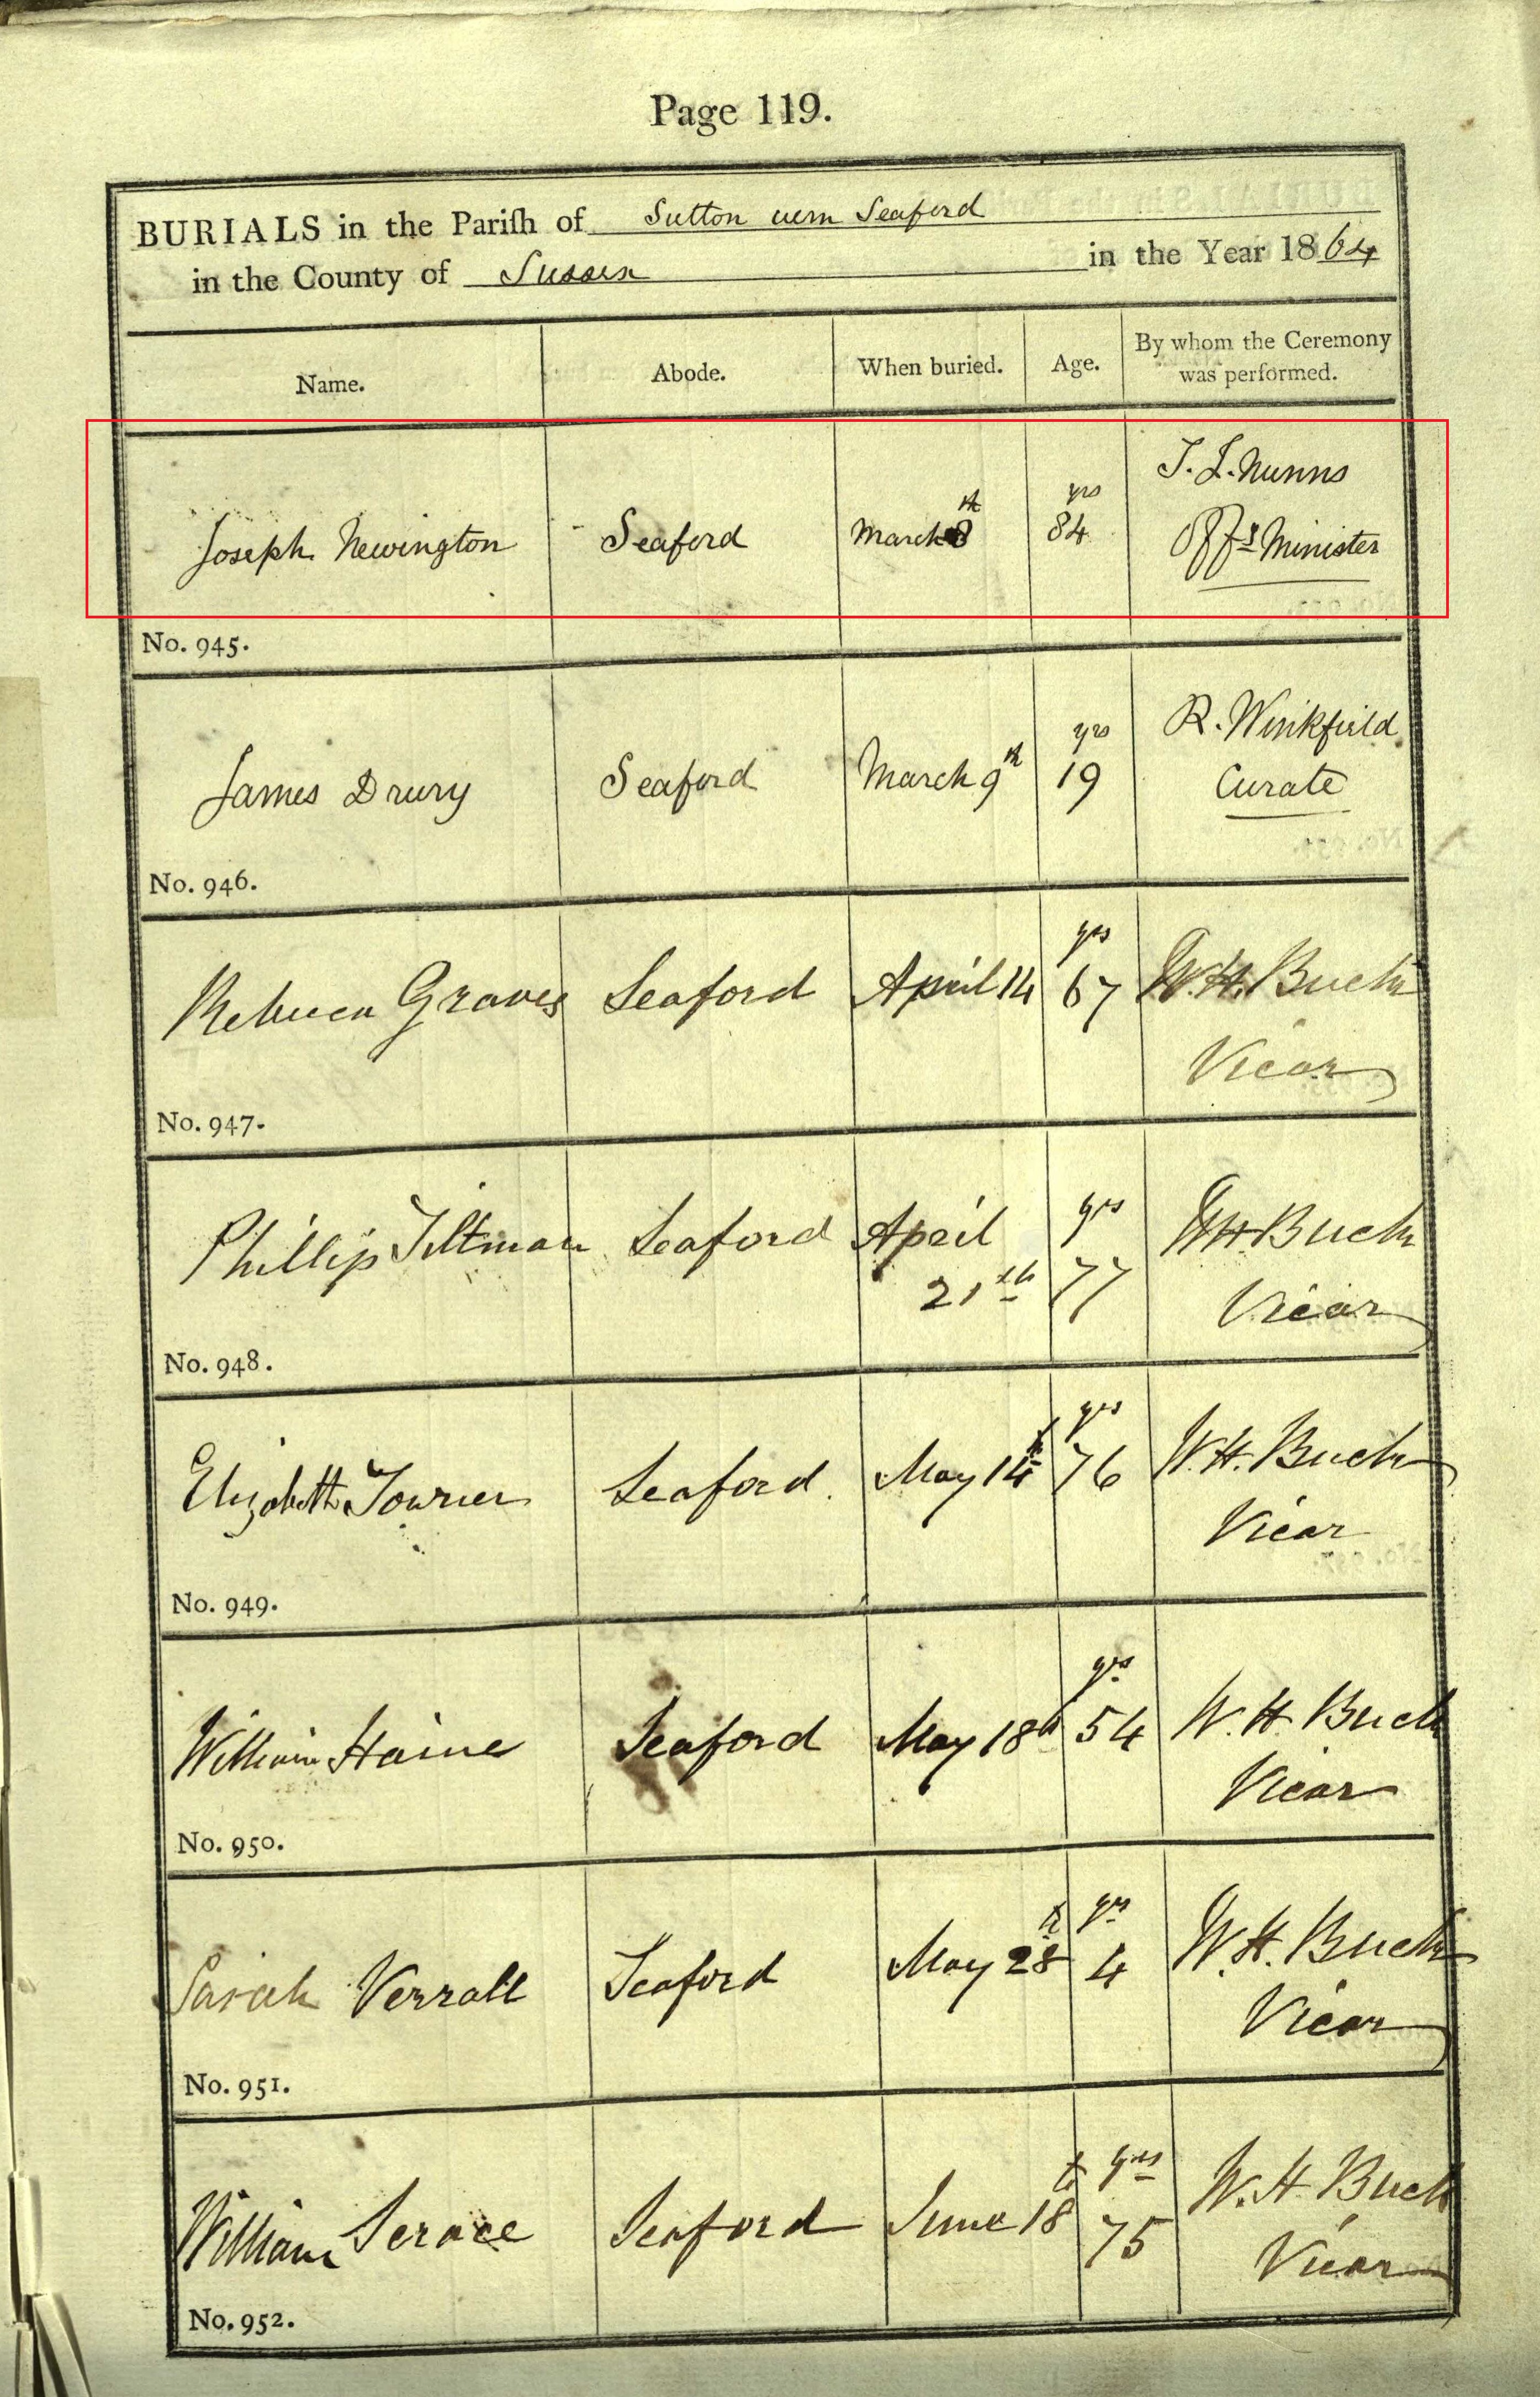 Page 119.
BURIALS in the Pariſh of Sutton cum Seaford
in the County of Sussex in the Year 1864
Name. Abode. When buried. Age. By whom the Ceremony was performed.
Joseph Newington Seaford March 8th 84 yrs T. L. Nunns
Offg Minister
No. 945.
James Drury Seaford March 9th 19 yrs R. Winkfield
Curate
No. 946.
Rebecca Graves Seaford April 14 67 yrs W. H. Buck
Vicar
No. 947.
Phillip Tiltman Seaford April 21th 77 yrs W H Buck
Vicar
No. 948.
Elizabeth Towner Seaford. May 14th 76 yrs W. H. Buck
Vicar
No. 949.
William Haine Seaford May 18th 54 yrs W. H Buck
Vicar
No. 950.
Sarah Verrall Seaford May 28th 4 yrs W. H. Buck
Vicar
No. 951.
William Seford June 18th 75 yrs W. H Buck
Vicar
No. 952.